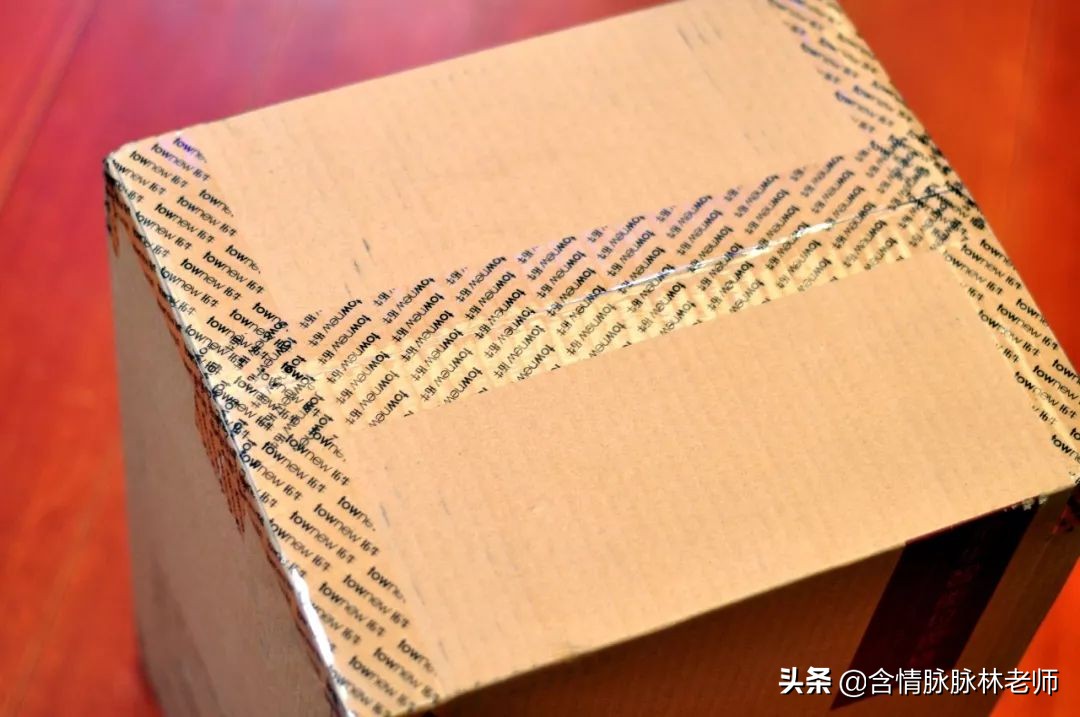 townew 拓牛
头条 @含情脉脉林老师